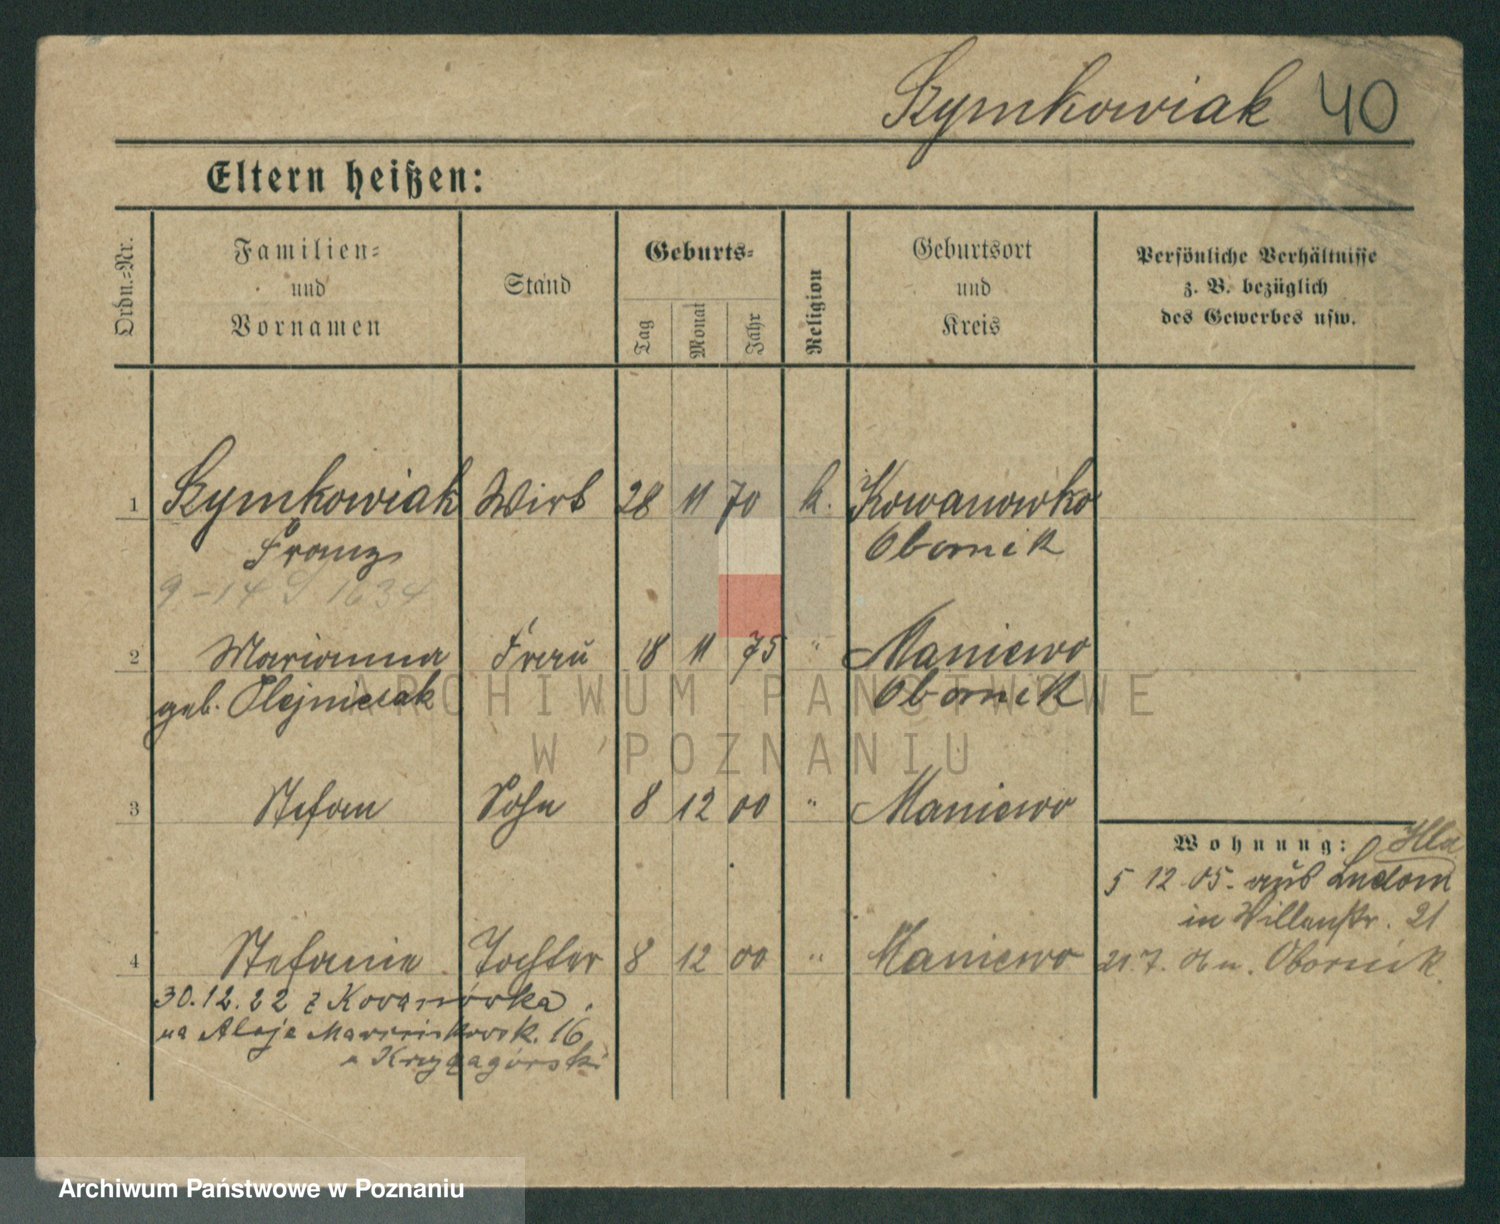 Szymkowiak 40
Eltern heißen:
Ordn.-Nr.
Familien-
und
Vornamen
Stand
Geburts-
Tag
Monat
Jahr
Religion
Geburtsort
und
Kreis
Persönliche Verhältnisse
z. B. bezüglich
des Gewerbes usw.
1 Szymkowiak Wirt 28 11 70 k. Kowanowko
Franz Obornik
9.-14
2 Marianna Frau 18 11 75 " Maniewo
geb. Olejniczak Obornik
3 Stefan Sohn 8 12 00 " Maniewo
Wohnung:
5 12 05. aus Ludom
in Villenstr. 21
4 Stefanie Tochter 8 12 00 " Maniewo
21.7. Obornik
30.12.22 z Kovanówka
na Aleje Marcinkowsk. 16
Krzyżagórski
ARCHIWUM PAŃSTWOWE
W POZNANIU
Archiwum Państwowe w Poznaniu